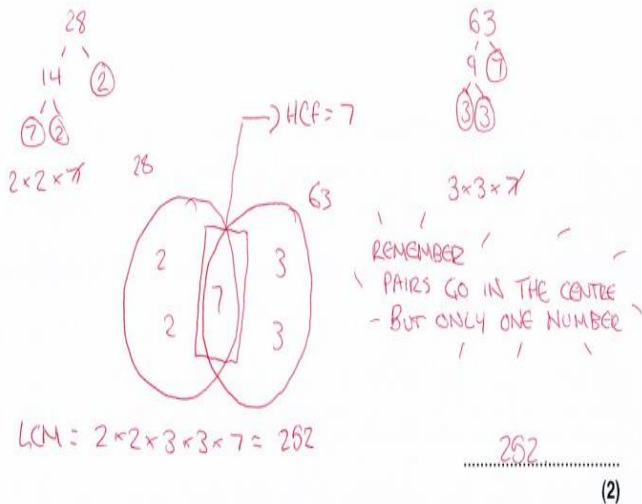 28
14 2
7 2
2×2×7
63
9 7
3 3
3×3×7
HCF = 7
28
63
2
2
7
3
3
REMEMBER
PAIRS GO IN THE CENTRE
- BUT ONLY ONE NUMBER
LCM = 2×2×3×3×7 = 252
252
(2)